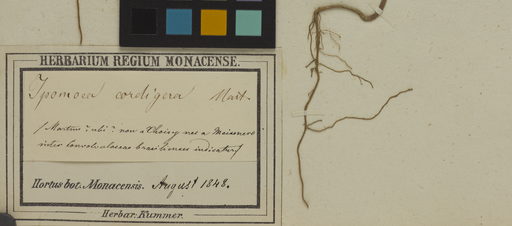 HERBARIUM REGIUM MONACENSE.
Ipomoea cordigera Mart.
(Martius? ubi? non a Choisy nec a Meisnero
inter Convolvulaceas brasilienses indicatur)
Hortus bot. Monacensis. August 1848.
Herbar. Kummer.